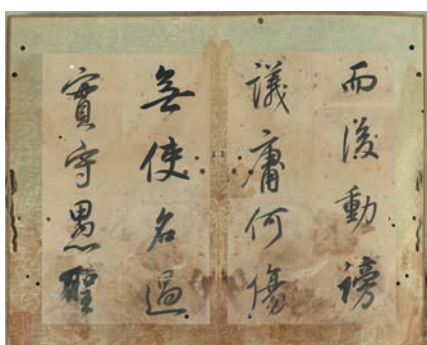 而後動謗
議庸何傷
無使名過
實守愚聖